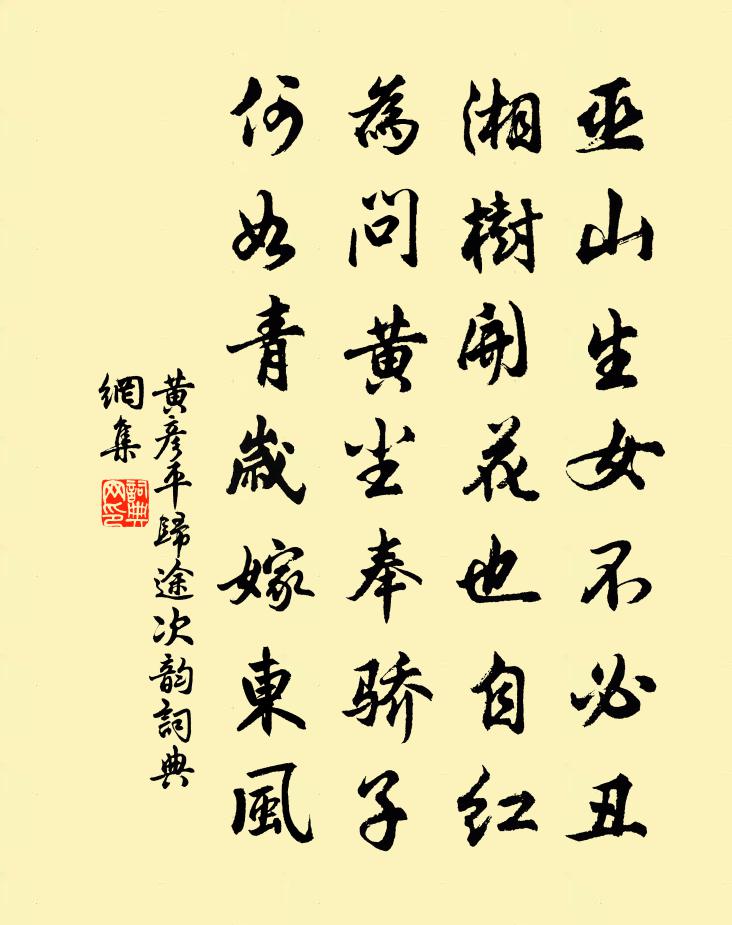 巫山生女不必丑
湘樹開花也自红
為问黄尘奉骄子
何如青歲嫁東風
黃彦平歸途次韵詞典
網集
詞典
网印